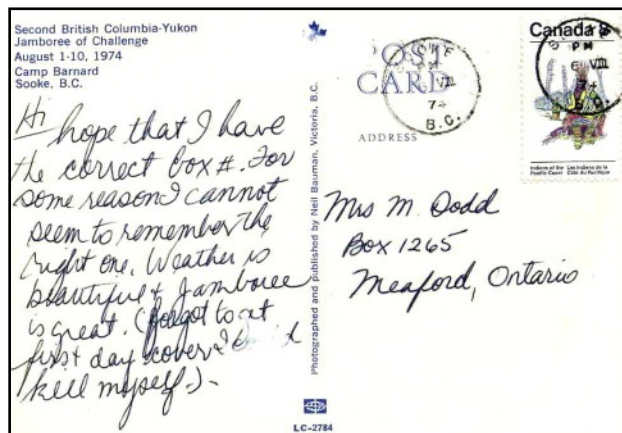 Second British Columbia-Yukon
Jamboree of Challenge
August 1-10, 1974
Camp Barnard
Sooke, B.C.
Hi
hope that I have
the correct box #. For
some reason I cannot
seem to remember the
right one. Weather is
beautiful & Jamboree
is great. (forgot to get
first day covers I could
kill myself.)
LC-2784
Photographed and published by Neil Bauman, Victoria, B.C.
POST
CARD
ADDRESS
SOOKE
PM
VIII
74
B.C.
Canada 8
PM
6 VIII
74
B.C.
Indians of the
Pacific Coast
Les Indiens de la
Côte du Pacifique
Mrs M. Dodd
Box 1265
Meaford, Ontario